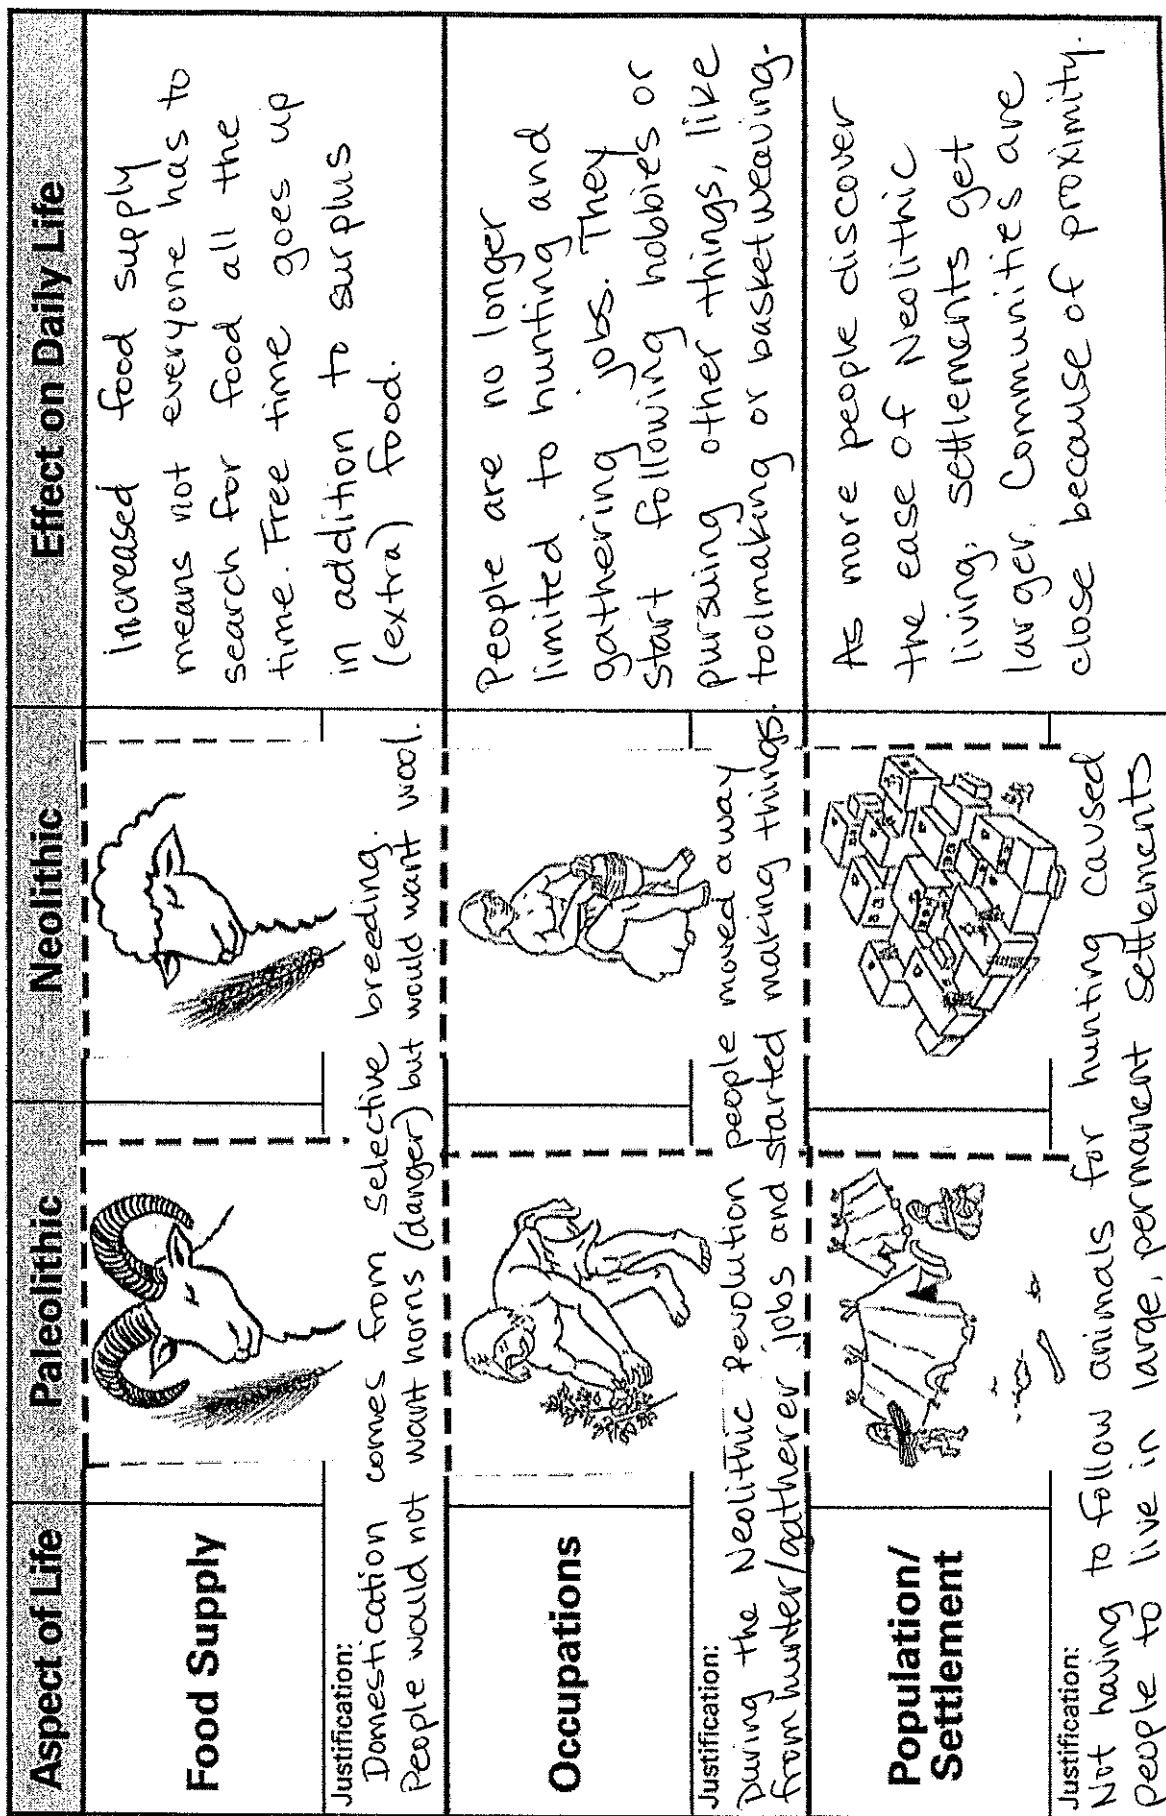 Aspect of Life
Paleolithic
Neolithic
Effect on Daily Life
Food Supply
Increased food supply
means not everyone has to
search for food all the
time. Free time goes up
in addition to surplus
(extra) food.
Justification:
Domestication comes from selective breeding.
People would not want horns (danger) but would want wool.
Occupations
People are no longer
limited to hunting and
gathering jobs. They
start following hobbies or
pursuing other things, like
toolmaking or basketweaving.
Justification:
During the Neolithic Revolution people moved away
from hunter/gatherer jobs and started making things.
Population/
Settlement
As more people discover
the ease of Neolithic
living, settlements get
larger. Communities are
close because of proximity.
Justification:
Not having to follow animals for hunting caused
people to live in large, permanent settlements